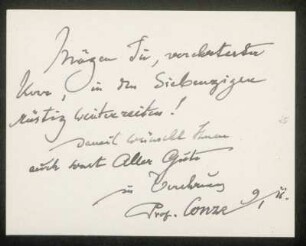 Mögen Sie, verehrtester
Herr, in den Siebenzigern
rüstig weiterreiten!
Damit wünscht Ihnen
auch sonst Alles Gute
in Verehrung
Prof. Conze